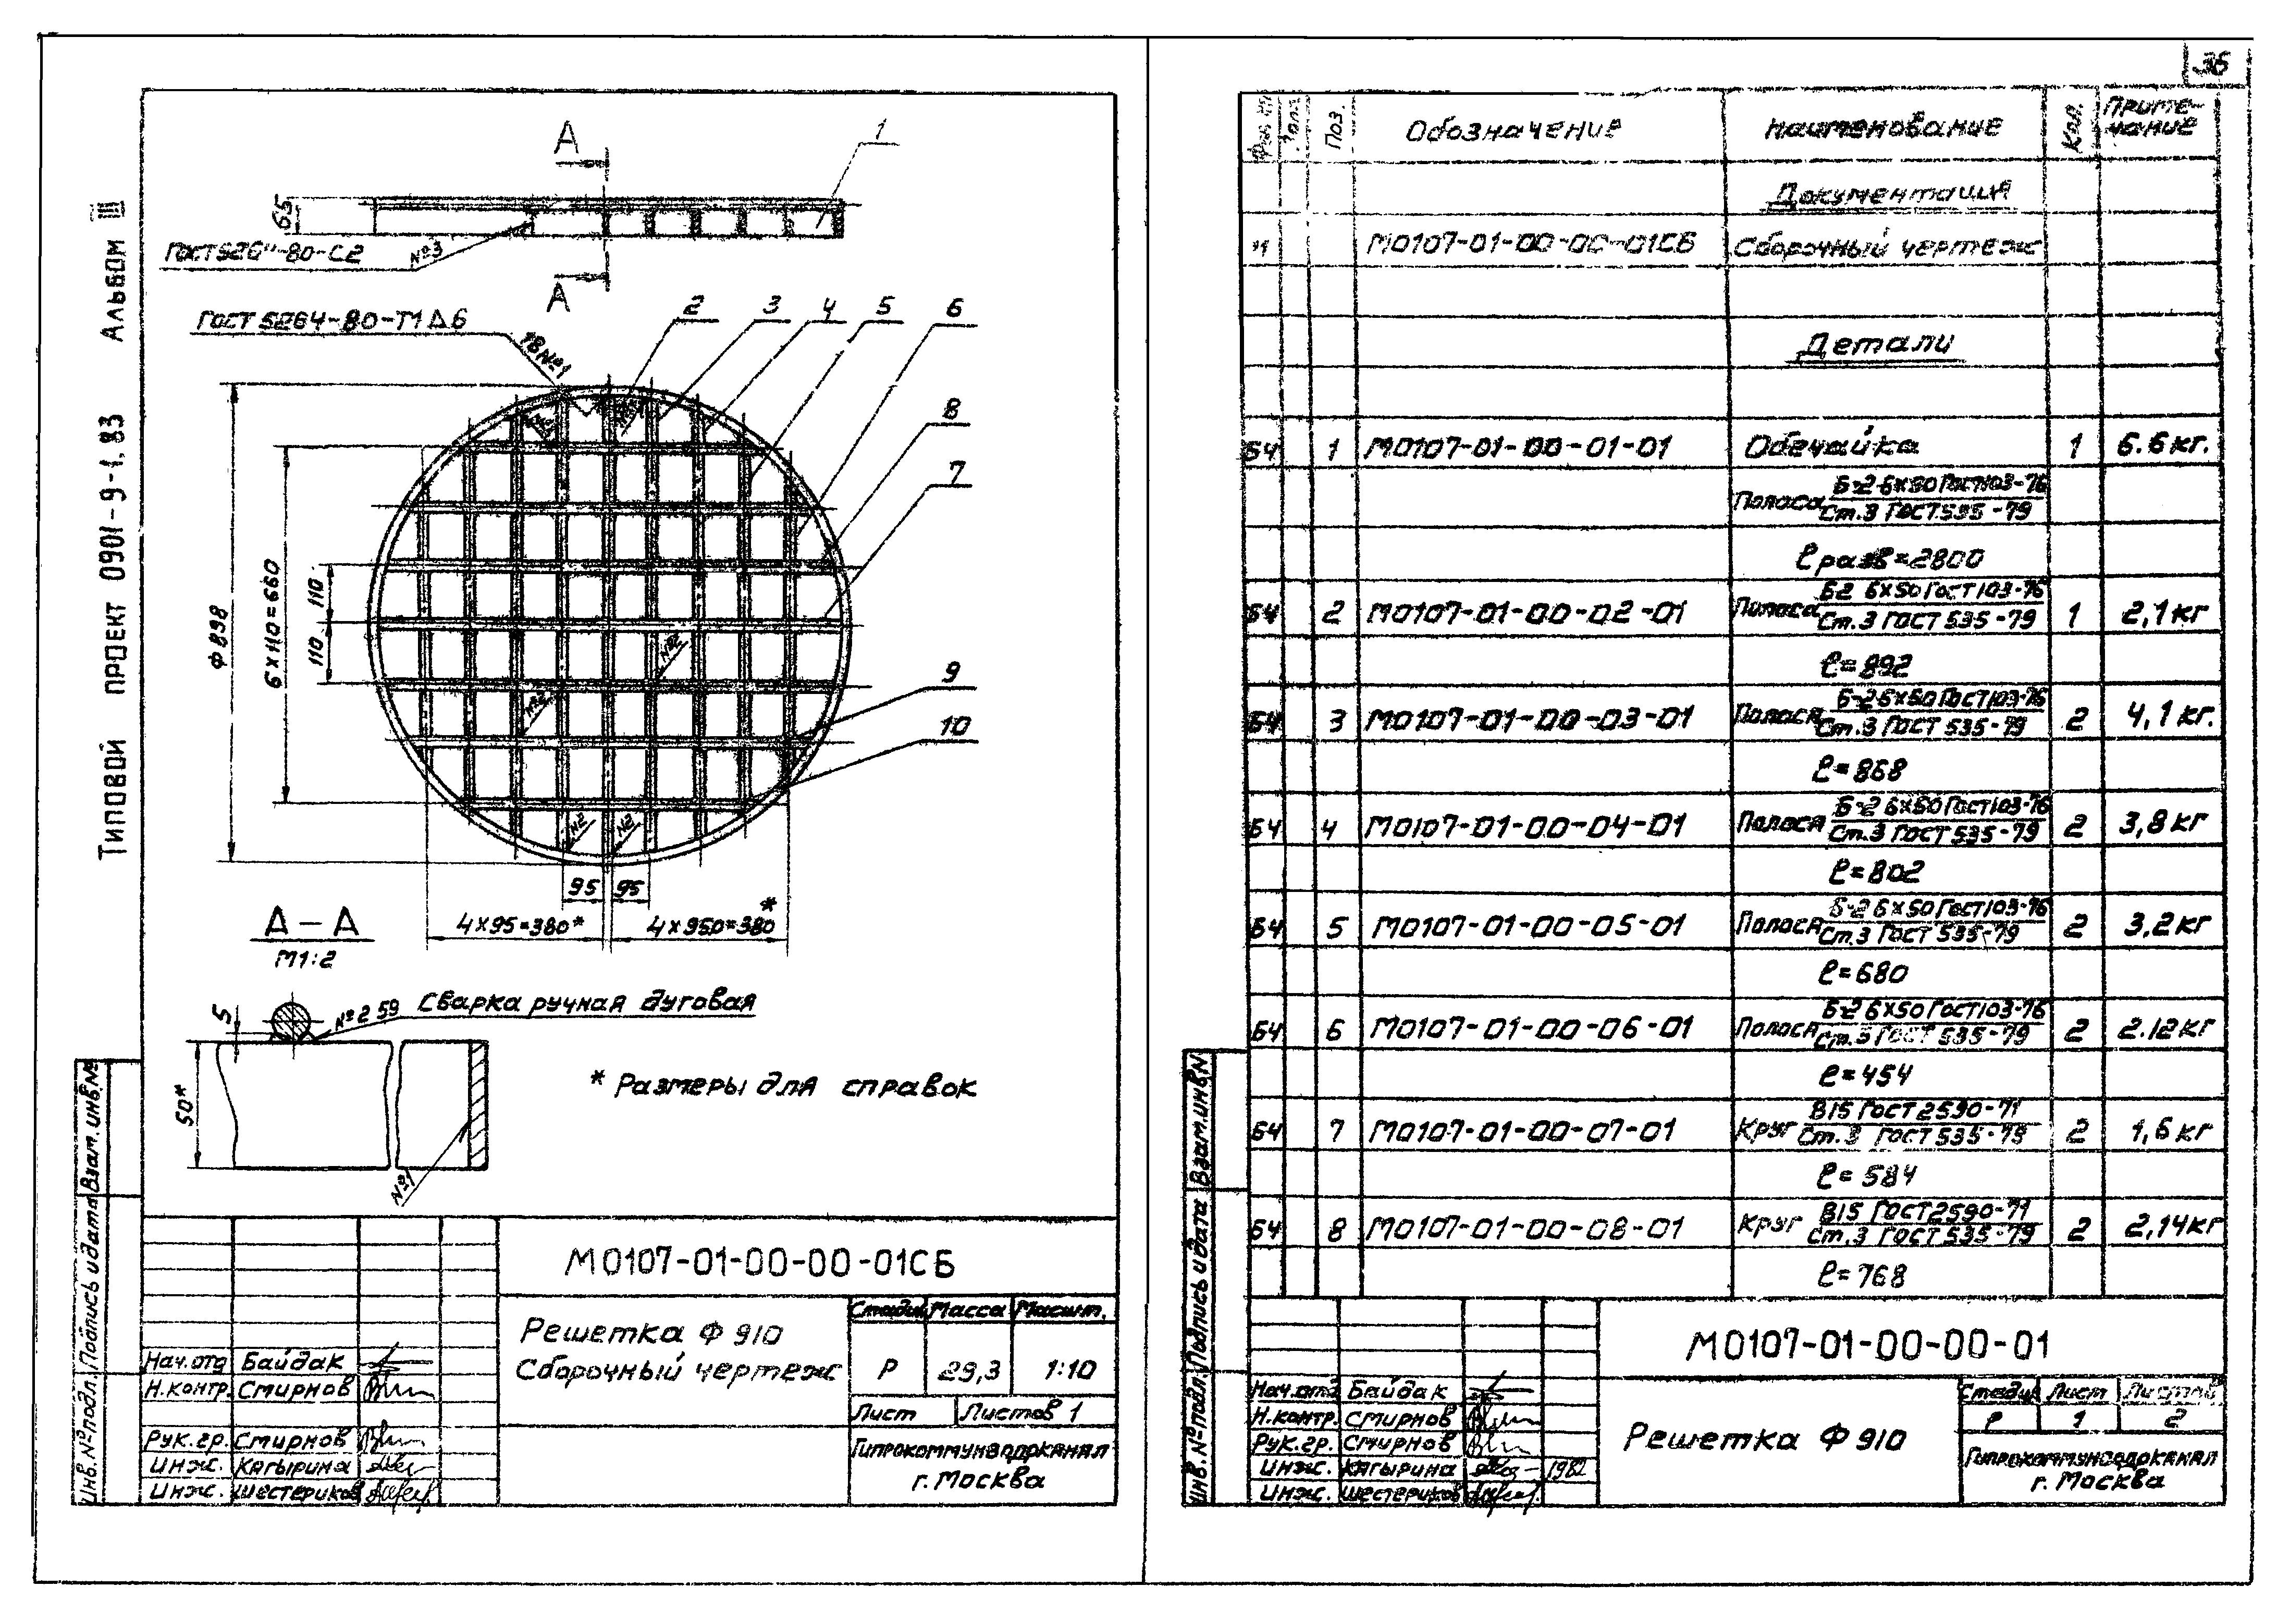 36
Типовой проект 0901-9-1.83 Альбом III
А
1
65
№3
А
ГОСТ 5264-80-Т1 Δ6
18 №1
2
3
4
5
6
8
7
9
10
Ф 898
6×110=660
110
110
№2
№2
№2
№2
95
95
4×95=380*
4×950=380*
А-А
М1:2
5
№2 59
Сварка ручная дуговая
50*
№1
* Размеры для справок
Взам. инв.№
Подпись и дата
Инв. № подл.
М0107-01-00-00-01СБ
Решетка Ф 910
Сборочный чертеж
Стадия Масса Масшт.
Р 29,3 1:10
Лист Листов 1
Гипрокоммунводоканал
г. Москва
Нач. отд Байдак
Н. контр. Смирнов
Рук. гр. Смирнов
Инж. Кагырина
Инж. Шестериков
Поз. Обозначение Наименование Кол. Примечание
Документация
11 М0107-01-00-00-01СБ Сборочный чертеж
Детали
Б4 1 М0107-01-00-01-01 Обечайка 1 6.6 кг.
Полоса Б-2 6×50 ГОСТ 103-76
Ст.3 ГОСТ 535-79
ℓ разв=2800
Б4 2 М0107-01-00-02-01 Полоса Б2 6×50 ГОСТ 103-76 1 2,1 кг
Ст.3 ГОСТ 535-79
ℓ=892
Б4 3 М0107-01-00-03-01 Полоса Б-2 6×50 ГОСТ 103-76 2 4,1 кг.
Ст.3 ГОСТ 535-79
ℓ=868
Б4 4 М0107-01-00-04-01 Полоса Б-2 6×50 ГОСТ 103-76 2 3,8 кг
Ст.3 ГОСТ 535-79
ℓ=802
Б4 5 М0107-01-00-05-01 Полоса Б-2 6×50 ГОСТ 103-76 2 3,2 кг
Ст.3 ГОСТ 535-79
ℓ=680
Б4 6 М0107-01-00-06-01 Полоса Б-2 6×50 ГОСТ 103-76 2 2.12 кг
Ст.3 ГОСТ 535-79
ℓ=454
Б4 7 М0107-01-00-07-01 Круг В15 ГОСТ 2590-71 2 1,6 кг
Ст.3 ГОСТ 535-79
ℓ=584
Б4 8 М0107-01-00-08-01 Круг В15 ГОСТ 2590-71 2 2,14 кг
Ст.3 ГОСТ 535-79
ℓ=768
Взам. инв.№
Подпись и дата
Инв. № подл.
М0107-01-00-00-01
Решетка Ф 910
Стадия Лист Листов
Р 1 2
Гипрокоммунводоканал
г. Москва
Нач. отд Байдак
Н. контр. Смирнов
Рук. гр. Смирнов
Инж. Кагырина 1982
Инж. Шестериков